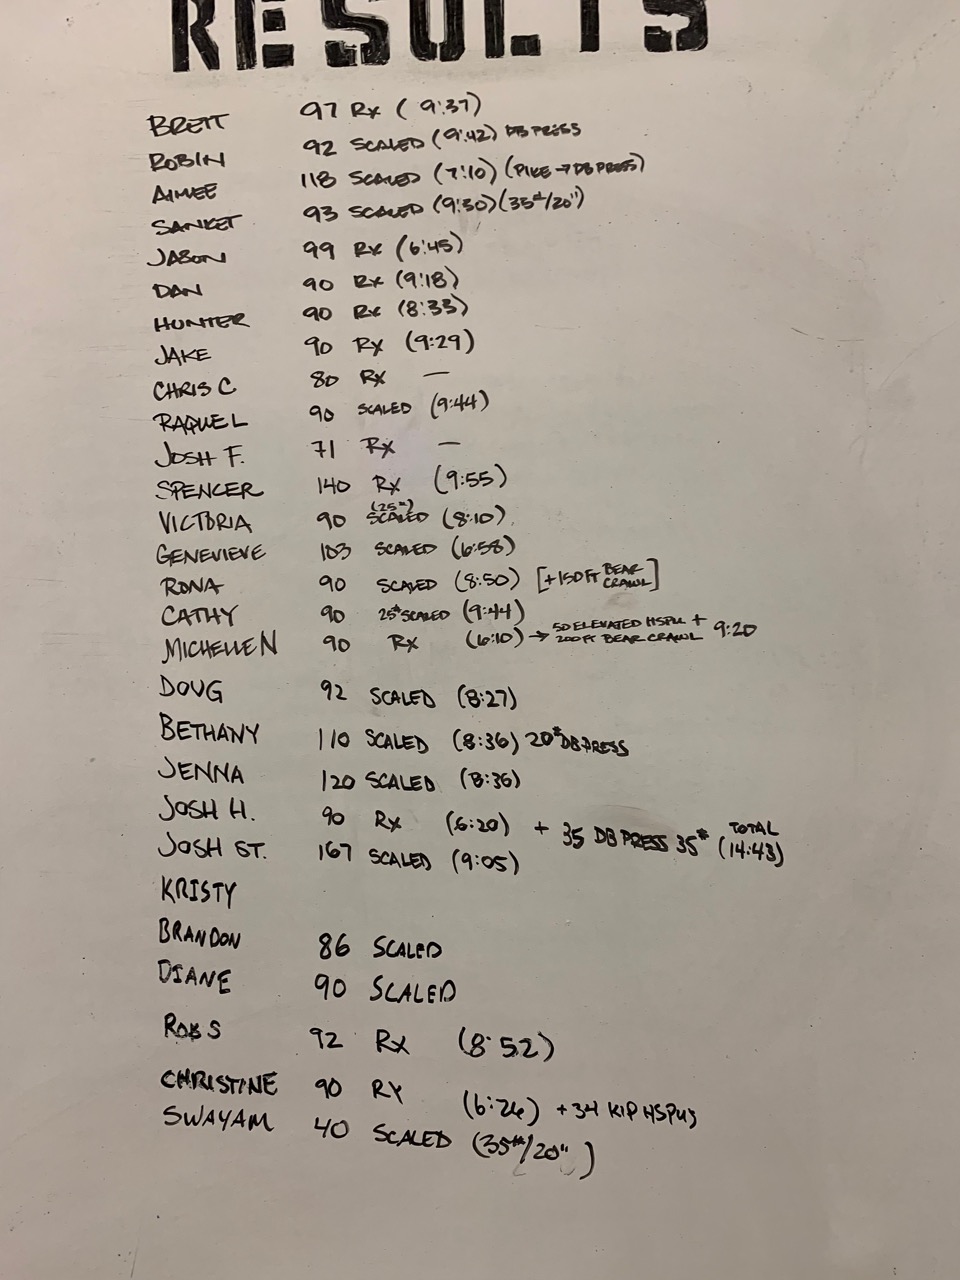 RESULTS
BRETT 97 Rx (9:37)
ROBIN 92 SCALED (9:42) DB PRESS
AIMEE 118 SCALED (7:10) (PIKE → DB PRESS)
SANKET 93 SCALED (9:30) (35#/20")
JASON 99 Rx (6:45)
DAN 90 Rx (9:18)
HUNTER 90 Rx (8:33)
JAKE 90 Rx (9:29)
CHRIS C 80 Rx —
RAQUEL 90 SCALED (9:44)
JOSH F. 71 Rx —
SPENCER 140 Rx (9:55)
VICTORIA 90 (25#) SCALED (8:10)
GENEVIEVE 103 SCALED (6:58)
RONA 90 SCALED (8:50) [+150 FT BEAR CRAWL]
CATHY 90 25# SCALED (9:44)
MICHELLE N 90 Rx (6:10) → 50 ELEVATED HSPU + 200 FT BEAR CRAWL 9:20
DOUG 92 SCALED (8:27)
BETHANY 110 SCALED (8:36) 20# DB PRESS
JENNA 120 SCALED (8:36)
JOSH H. 90 Rx (6:20) + 35 DB PRESS 35# TOTAL (14:43)
JOSH ST. 167 SCALED (9:05)
KRISTY
BRANDON 86 SCALED
DIANE 90 SCALED
ROB S 92 Rx (8:52)
CHRISTINE 90 RX (6:26) + 34 KIP HSPUs
SWAYAM 40 SCALED (35#/20")